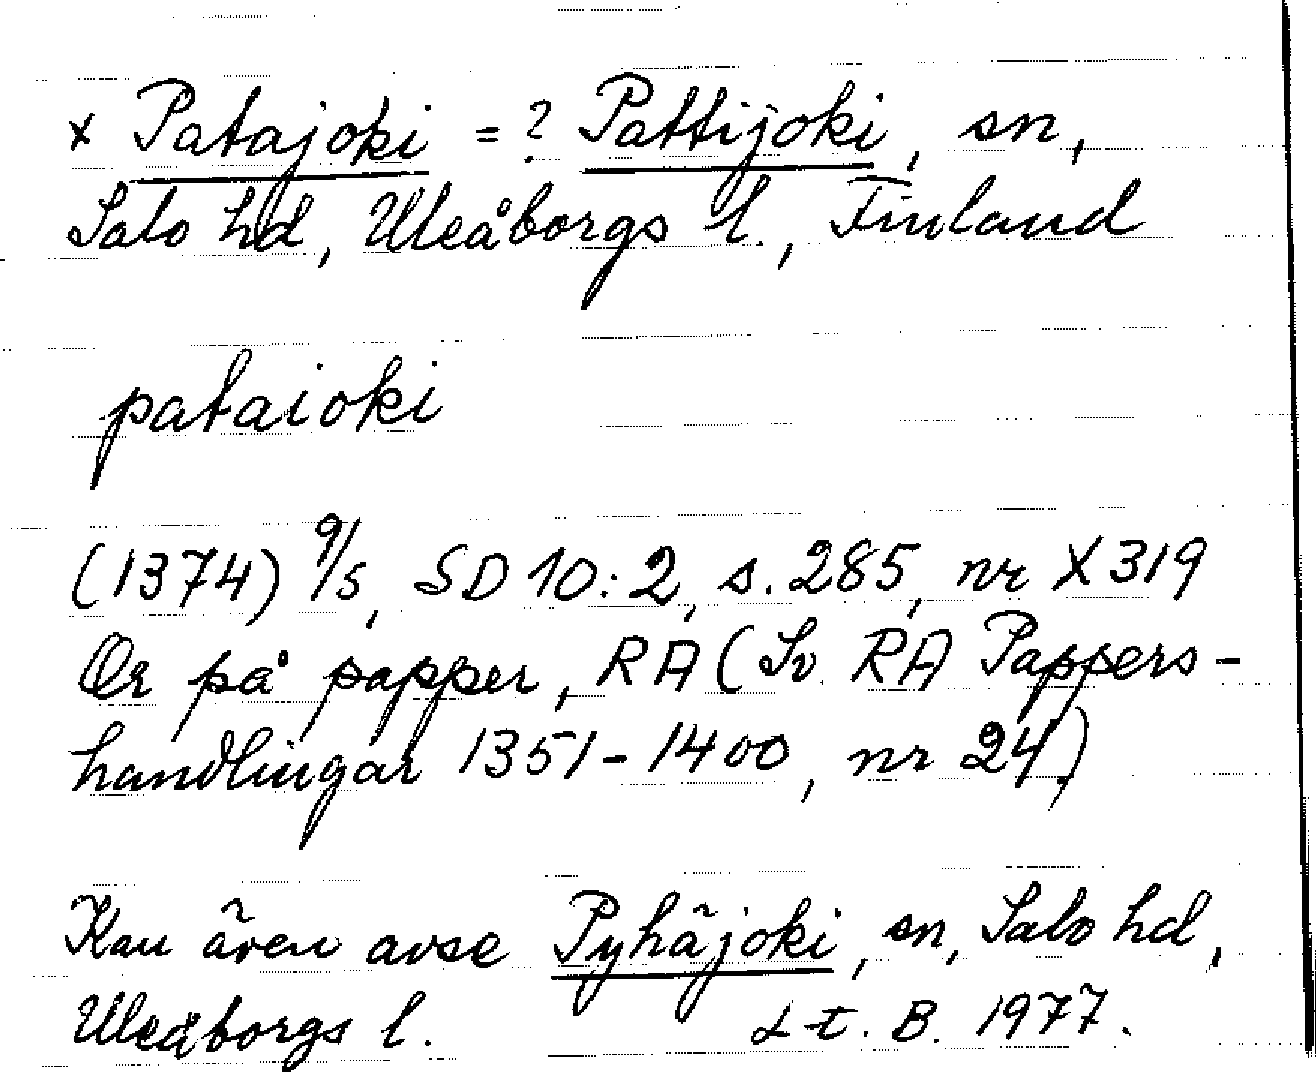 x Patajoki = ? Pattijoki, sn,
Salo hd, Uleåborgs l., Finland
pataioki
(1374) 9/5, SD 10:2, s. 285, nr X 319
Or på papper, RA (Sv. RA Pappers-
handlingar 1351-1400, nr 24)
Kan även avse Pyhäjoki, sn, Salo hd,
Uleåborgs l. L t. B. 1977.